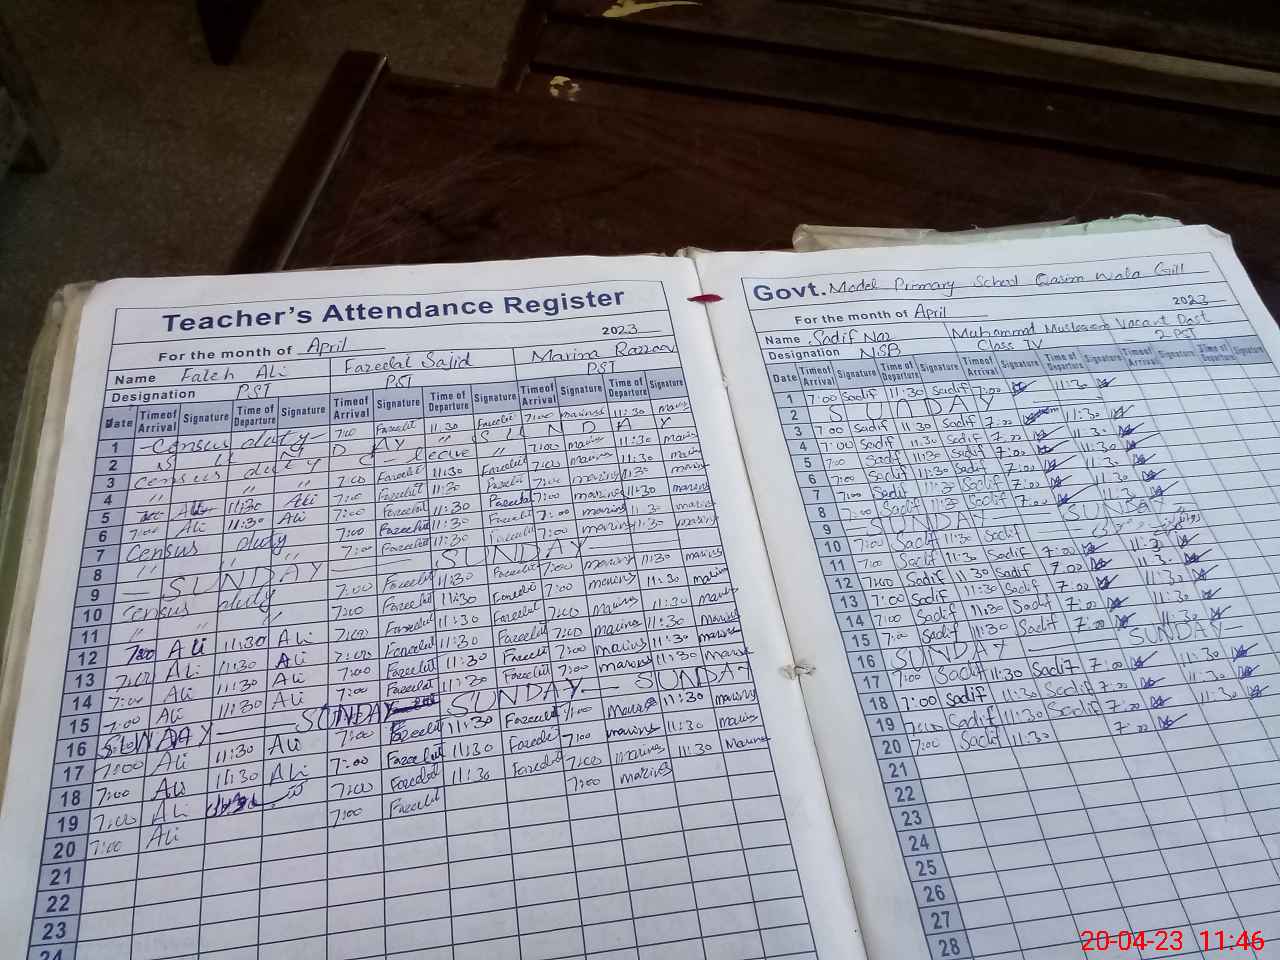 Teacher's Attendance Register
For the month of April 2023
Name Fateh Ali Fazeelat Sajid Marina Razzaq
Designation PST PST PST
Date Time of Arrival Signature Time of Departure Signature Time of Arrival Signature Time of Departure Signature Time of Arrival Signature Time of Departure Signature
1 Census duty 7:00 Fazeelat 11:30 Fazeelat 7:00 11:30
2 SUNDAY SUNDAY
3 Census duty C-leave 7:00 11:30
4 " " 7:00 Fazeelat 11:30 Fazeelat 7:00 11:30
5 7:00 Ali 11:30 Ali 7:00 Fazeelat 11:30 Fazeelat 7:00 11:30
6 7:00 Ali 11:30 Ali 7:00 Fazeelat 11:30 Fazeelat 7:00 11:30
7 Census Duty 7:00 Fazeelat 11:30 Fazeelat 7:00 11:30
8 " " 7:00 Fazeelat 11:30 Fazeelat 7:00 11:30
9 — SUNDAY — SUNDAY —
10 Census Duty 7:00 Fazeelat 11:30 Fazeelat 7:00 11:30
11 " " 7:00 Fazeelat 11:30 Fazeelat 7:00 11:30
12 7:00 Ali 11:30 Ali 7:00 Fazeelat 11:30 Fazeelat 7:00 11:30
13 7:00 Ali 11:30 Ali 7:00 Fazeelat 11:30 Fazeelat 7:00 11:30
14 7:00 Ali 11:30 Ali 7:00 Fazeelat 11:30 Fazeelat 7:00 11:30
15 7:00 Ali 11:30 Ali 7:00 Fazeelat 11:30 Fazeelat 7:00 11:30
16 SUNDAY — SUNDAY SUNDAY — SUNDAY
17 7:00 Ali 11:30 Ali 7:00 Fazeelat 11:30 Fazeelat 7:00 11:30
18 7:00 Ali 11:30 Ali 7:00 Fazeelat 11:30 Fazeelat 7:00 11:30
19 7:00 Ali 7:00 Fazeelat 11:30 Fazeelat 7:00 11:30
20 7:00 Ali 7:00 Fazeelat 7:00
21
22
23
24
Govt. Model Primary School Qasim Wala Gill
For the month of April 2023
Name Sadif Naz Muhammad Vacant Post
Designation NSB Class IV 2-PST
Date Time of Arrival Signature Time of Departure Signature Time of Arrival Signature Time of Departure Signature Time of Arrival Signature Time of Departure Signature
1 7:00 Sadif 11:30 Sadif 7:00 11:30
2 SUNDAY
3 7:00 Sadif 11:30 Sadif 7:00 11:30
4 7:00 Sadif 11:30 Sadif 7:00 11:30
5 7:00 Sadif 11:30 Sadif 7:00 11:30
6 7:00 Sadif 11:30 Sadif 7:00 11:30
7 7:00 Sadif 11:30 Sadif 7:00 11:30
8 7:00 Sadif 11:30 Sadif 7:00 11:30
9 SUNDAY — SUNDAY —
10 7:00 Sadif 11:30 Sadif
11 7:00 Sadif 11:30 Sadif 7:00 11:30
12 7:00 Sadif 11:30 Sadif 7:00 11:30
13 7:00 Sadif 11:30 Sadif 7:00 11:30
14 7:00 Sadif 11:30 Sadif 7:00 11:30
15 7:00 Sadif 11:30 Sadif 7:00 11:30
16 SUNDAY — SUNDAY —
17 7:00 Sadif 11:30 Sadif 7:00 11:30
18 7:00 Sadif 11:30 Sadif 7:00 11:30
19 7:00 Sadif 11:30 Sadif 7:00 11:30
20 7:00 Sadif 11:30 7:00
21
22
23
24
25
26
27
28
20-04-23 11:46